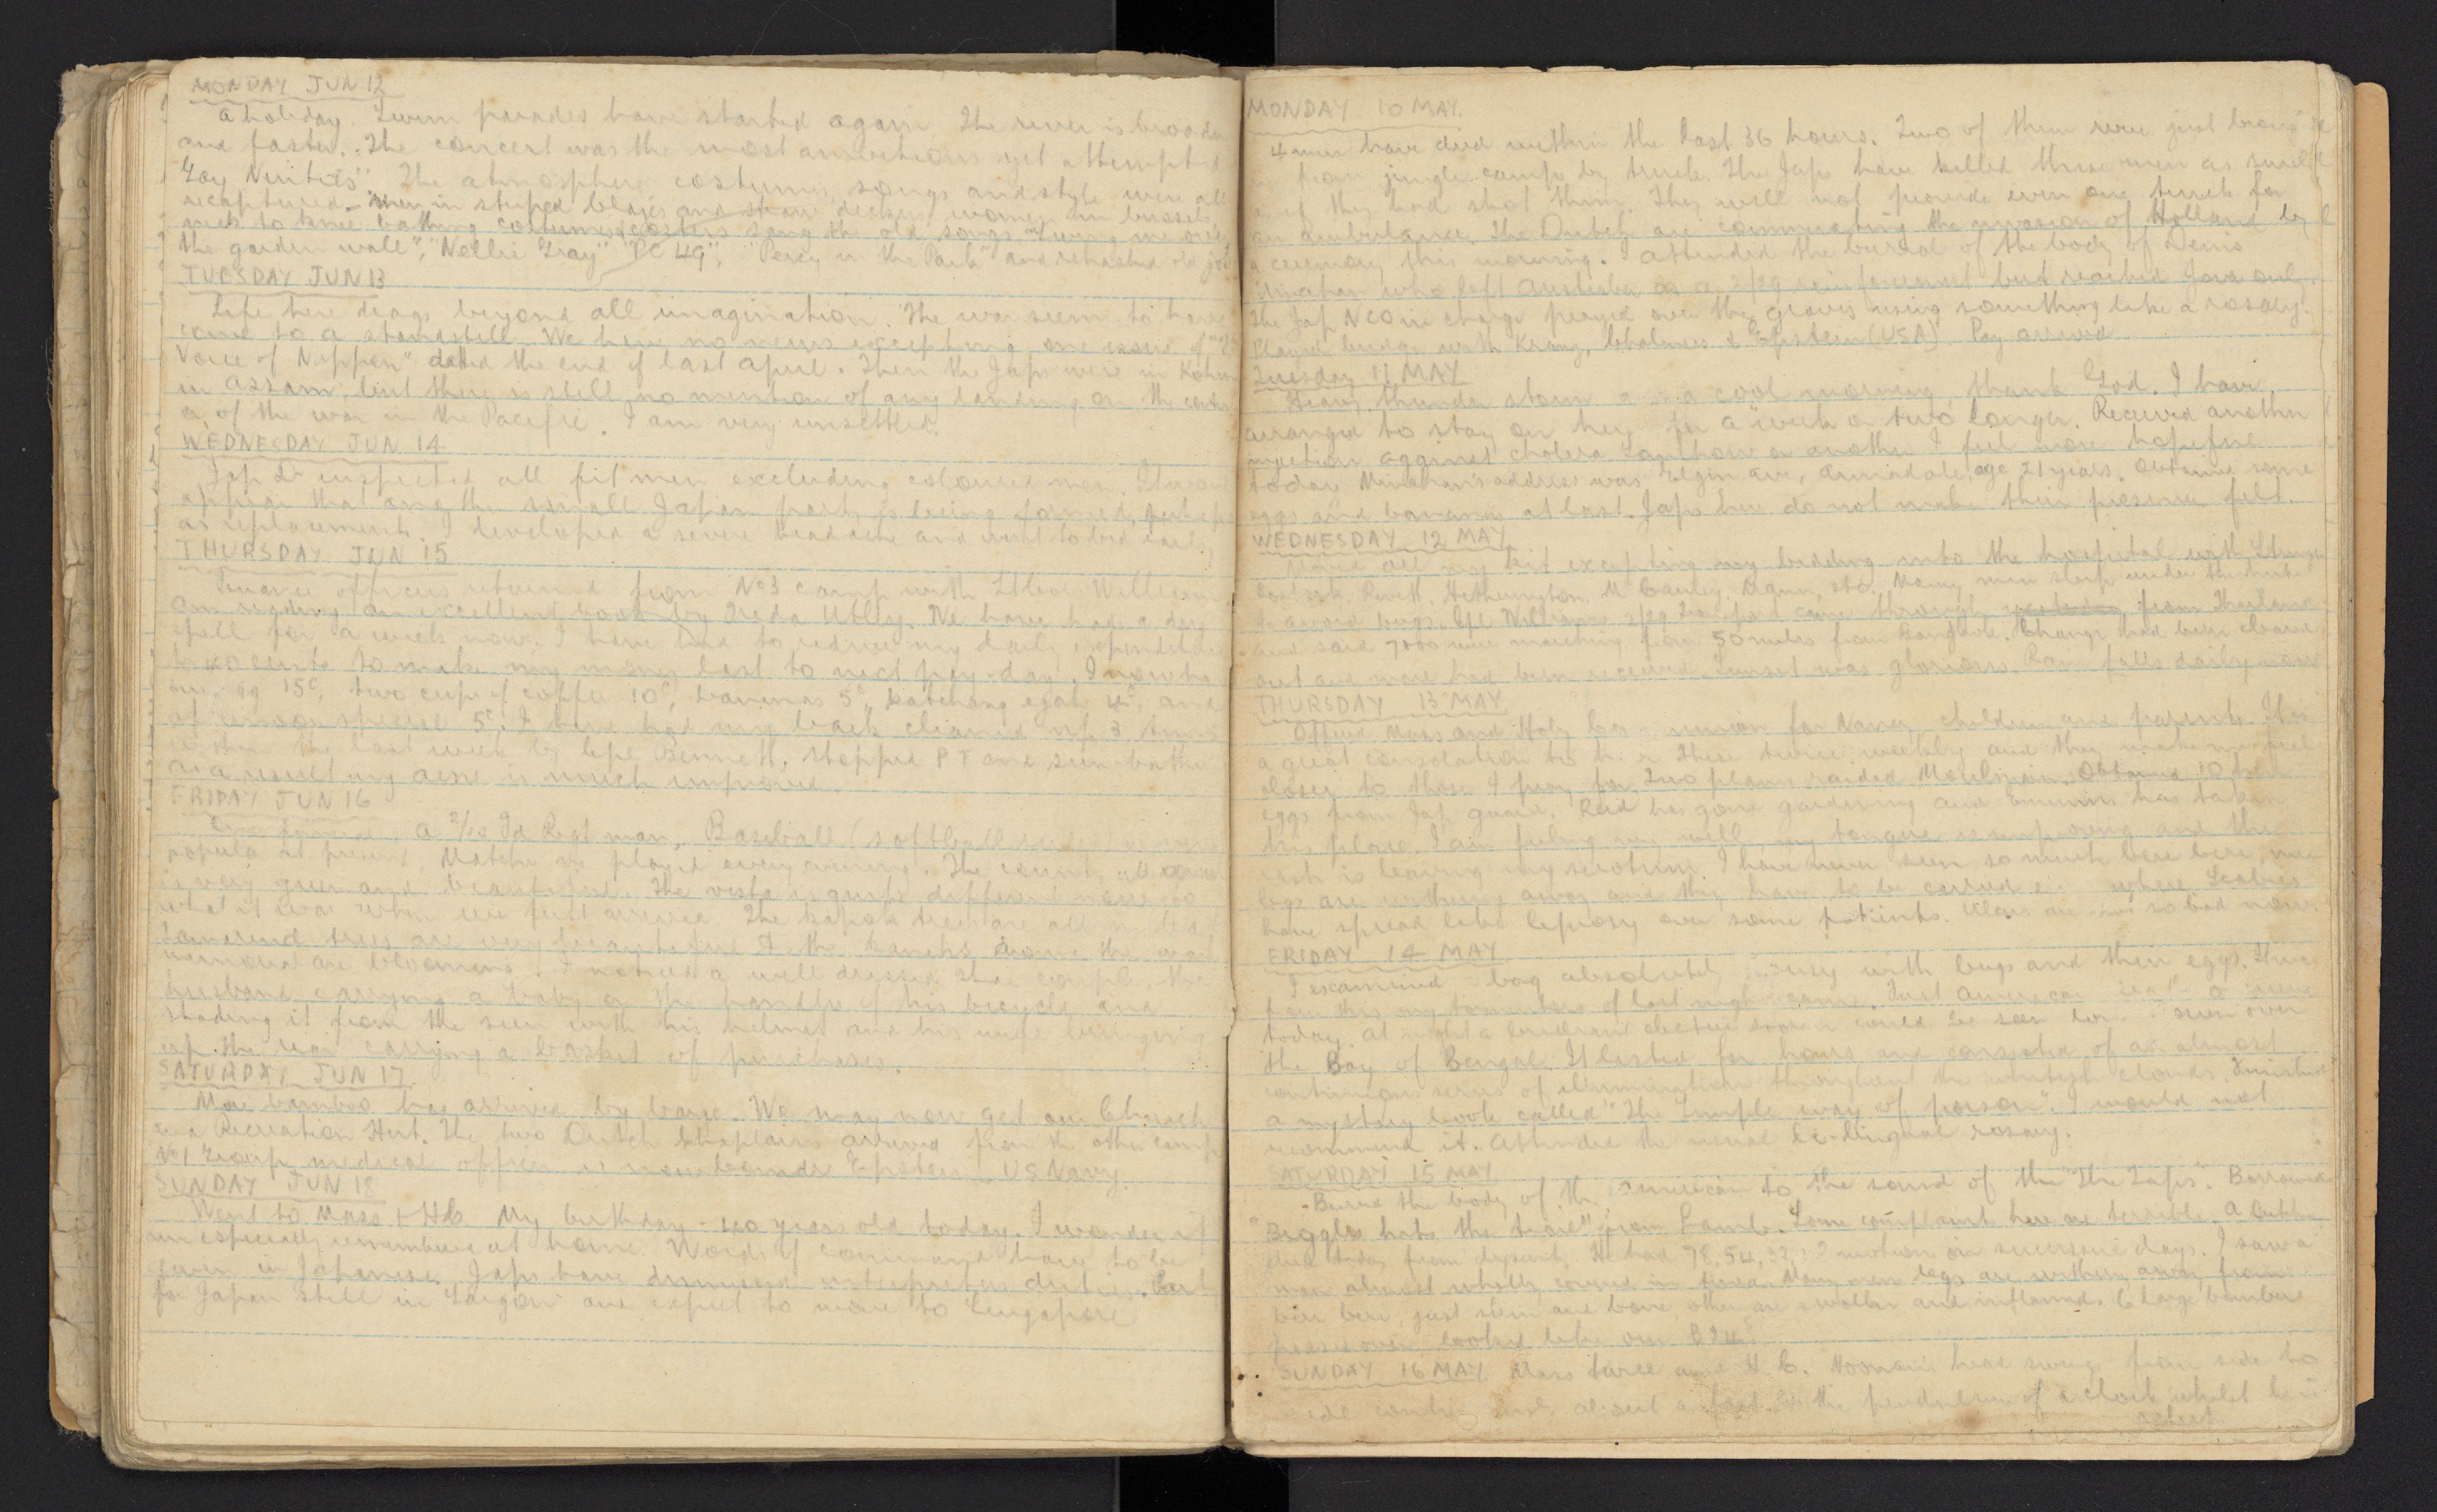 MONDAY JUN 12
A holiday. Swim parades have started again. The river is broader
and faster. The concert was the most ambitious yet attempted
"Gay Nineties". The atmosphere, costumes, songs and style were all
recaptured - Men in striped blazers and straw deckers, women in bussels,
neck to knee bathing costumes & costers sang the old songs "Swing me over
the garden wall", "Nellie Gray" "PC 49", "Percy in the Park" and rehashed old
TUESDAY JUN 13
Life here drags beyond all imagination. The war seem to have
come to a standstill. We have no news excepting one issue of "The
Voice of Nippon" dated the end of last April. Then the Japs were in Kohima
in Assam, but there is still no mention of any landing on the
or of the war in the Pacific. I am very unsettled.
WEDNESDAY JUN 14
Jap Dr inspected all fit men excluding coloured men. It would
appear that another small Japan party is being formed, perhaps
as replacements. I developed a severe headache and went to bed early
THURSDAY JUN 15
officers returned from No 3 camp with Williams
Am reading an excellent book by Freda Utley. We have had a dry
spell for a week now. I have had to reduce my daily expenditure
to 40 cents to make my money last to next pay-day. I now have
one egg 15c, two cups of coffee 10c, bananas 5c, katchang 4c, and
afternoon special 5c. I have had my back cleaned up 3 times
within the last week by Cpl Bennett, stopped PT and sun-bathe
as a result my acne is much improved.
FRIDAY JUN 16
a 2/ Pd Regt man, Baseball (softball
popular at present. Matches are played every evening. The country all
is very green and beautiful. The vista is quite different now to
what it was when we first arrived. The kapok trees are all in leaf
Tamarind trees are very & the banks
are blooming. I noticed a well dressed Thai couple, the
husband carrying a baby on the handles of his bicycle and
shading it from the sun with his helmet and his wife bringing
up the rear carrying a basket of purchases.
SATURDAY JUN 17
More bamboo has arrived by barge. We may now get our Church
and Recreation Hut. The two Dutch chaplains arrived from the other camp.
No 1 Group medical officer is now Comdr Epstein US Navy.
SUNDAY JUN 18
Went to Mass & HC. My birthday - 40 years old today. I wonder if
am especially remembered at home. Words of command have to be
given in Japanese. Japs have dismissed interpreters duties.
for Japan still in Saigon and expect to move to Singapore
MONDAY 10 MAY.
4 men have died within the last 36 hours. Two of them were just brought
in from jungle camp by truck. The Japs have killed these men as surely
as if they had shot them. They will not provide even one truck for
an ambulance. The Dutch are commemorating the invasion of Holland by
a ceremony this morning. I attended the burial of the body of Denis
Minahan who left Australia as a 2/29 reinforcement but reached Java only.
The Jap NCO in charge prayed over the graves using something like a rosary.
Played bridge with Kranz, Chalmers & Epstein (USA). Pay arrived
Tuesday 11 MAY
Heavy thunder storm a cool morning, thank God. I have
arranged to stay on here for a week or two longer. Received another
injection against cholera. Somehow or another I feel more hopeful
today. Minahan's address was Elgin Ave, Armadale, age 21 years. Obtained some
eggs and bananas at last. Japs here do not make their presence felt.
WEDNESDAY 12 MAY
Moved all my kit excepting my bedding into the hospital with
Rivett, Hetherington, McCauley, Mann, etc. Many men sleep under the huts
to avoid bugs. Cpl Williams 2/29 Transport came through from Thailand
and said 7000 were marching from 50 miles from Bangkok. Changi had been cleared
out and more had been received. Sunset was glorious. Rain falls daily now
THURSDAY 13 MAY
Offered Mass and Holy Communion for Nance, children and parents. It is
a great consolation to these twice weekly and they make me feel
closer to those I pray for. Two planes raided Moulmein. Obtained 10
eggs from Jap guard. Reid has gone gardening and has taken
his place. I am feeling very well, my tongue is improving and the
rash is leaving my scrotum. I have never seen so much bere bere, men
legs are withering away and they have to be carried where. Scabies
have spread like leprosy over some patients. Ulcers are not so bad now.
FRIDAY 14 MAY
I examined bag absolutely with bugs and their eggs.
from this my tormentors of last night came. First American
today. At night a brilliant electric storm could be seen over
the Bay of Bengal. It lasted for hours and consisted of an almost
continuous series of illuminations throughout the whitish clouds. Finished
a mystery book called "The Simple way of poison". I would not
recommend it. Attended the usual bi-lingual rosary.
SATURDAY 15 MAY
Buried the body of the American to the sound of the "The Taps". Borrowed
"Biggles hits the trail" from Lamb. Some complaints here are terrible. A
died today from dysentry. He had 78, 54, 32 motions on successive days. I saw a
man almost wholly covered in tinea. Many men legs are withering away from
bere bere, just skin and bone other are swollen and inflamed. 6 large bombers
passed over looked like our B24s
SUNDAY 16 MAY Mass table and H.C. Noonan's head swings from side to
side about as fast as the pendulum of a clock whilst he is
asleep